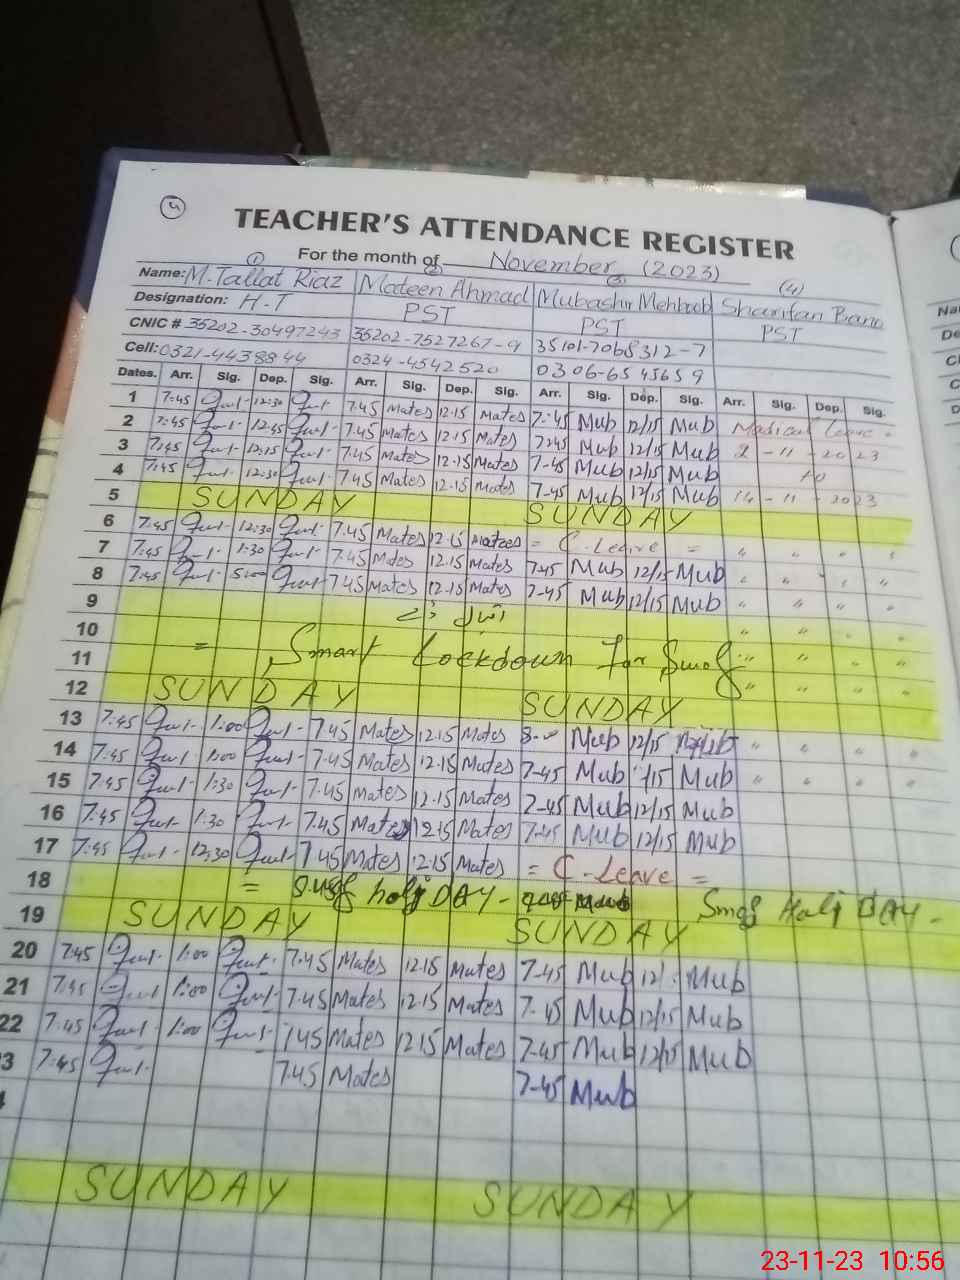 4
TEACHER'S ATTENDANCE REGISTER
For the month of November (2023)
Name: M. Tallat Riaz Mateen Ahmad Mubashir Mehboob Sharifan Bano
① ② ③ (4)
Designation: H.T PST PST PST
CNIC # 35202-30497243 35202-7527267-9 35101-7068312-7
Cell: 0321-4438844 0324-4542520 0306-6545659
Dates. Arr. Sig. Dep. Sig. Arr. Sig. Dep. Sig. Arr. Sig. Dep. Sig. Arr. Sig. Dep. Sig.
1 7:45 12:30 7.45 Mates 12.15 Mates 7-45 Mub 12/15 Mub Madical Leave
2 7:45 12:45 7.45 Mates 12.15 Mates 7-45 Mub 12/15 Mub 2-11-2023
3 7:45 12:15 7.45 Mates 12.15 Mates 7-45 Mub 12/15 Mub to
4 7:45 12:30 7.45 Mates 12.15 Mates 7-45 Mub 12/15 Mub 14-11-2023
5 SUNDAY SUNDAY
6 7:45 12:30 7.45 Mates 12.15 Mates = C.Leave = " " " "
7 7:45 1:30 7.45 Mates 12.15 Mates 7-45 Mub 12/15 Mub " " " "
8 7:45 5:00 7.45 Mates 12.15 Mates 7-45 Mub 12/15 Mub " " " "
9 اقبال ڈے " " " "
10 = Smart Lockdown For Smog " " " "
11 " " " "
12 SUNDAY SUNDAY
13 7:45 1:00 7.45 Mates 12.15 Mates 8-00 Mub 12/15 Mub " " " "
14 7:45 1:00 7.45 Mates 12.15 Mates 7-45 Mub /15 Mub " " " "
15 7:45 1:30 7.45 Mates 12.15 Mates 7-45 Mub 12/15 Mub
16 7:45 1:30 7.45 Mates 12.15 Mates 7-45 Mub 12/15 Mub
17 7:45 12:30 7.45 Mates 12.15 Mates = C.Leave =
18 = Smog holi DAY - Smog Holi DAY -
19 SUNDAY SUNDAY
20 7:45 1:00 7.45 Mates 12.15 Mates 7-45 Mub 12/ Mub
21 7:45 1:00 7.45 Mates 12.15 Mates 7-45 Mub 12/15 Mub
22 7:45 1:00 7.45 Mates 12.15 Mates 7-45 Mub 12/15 Mub
3 7:45 7.45 Mates 7-45 Mub
SUNDAY SUNDAY
23-11-23 10:56